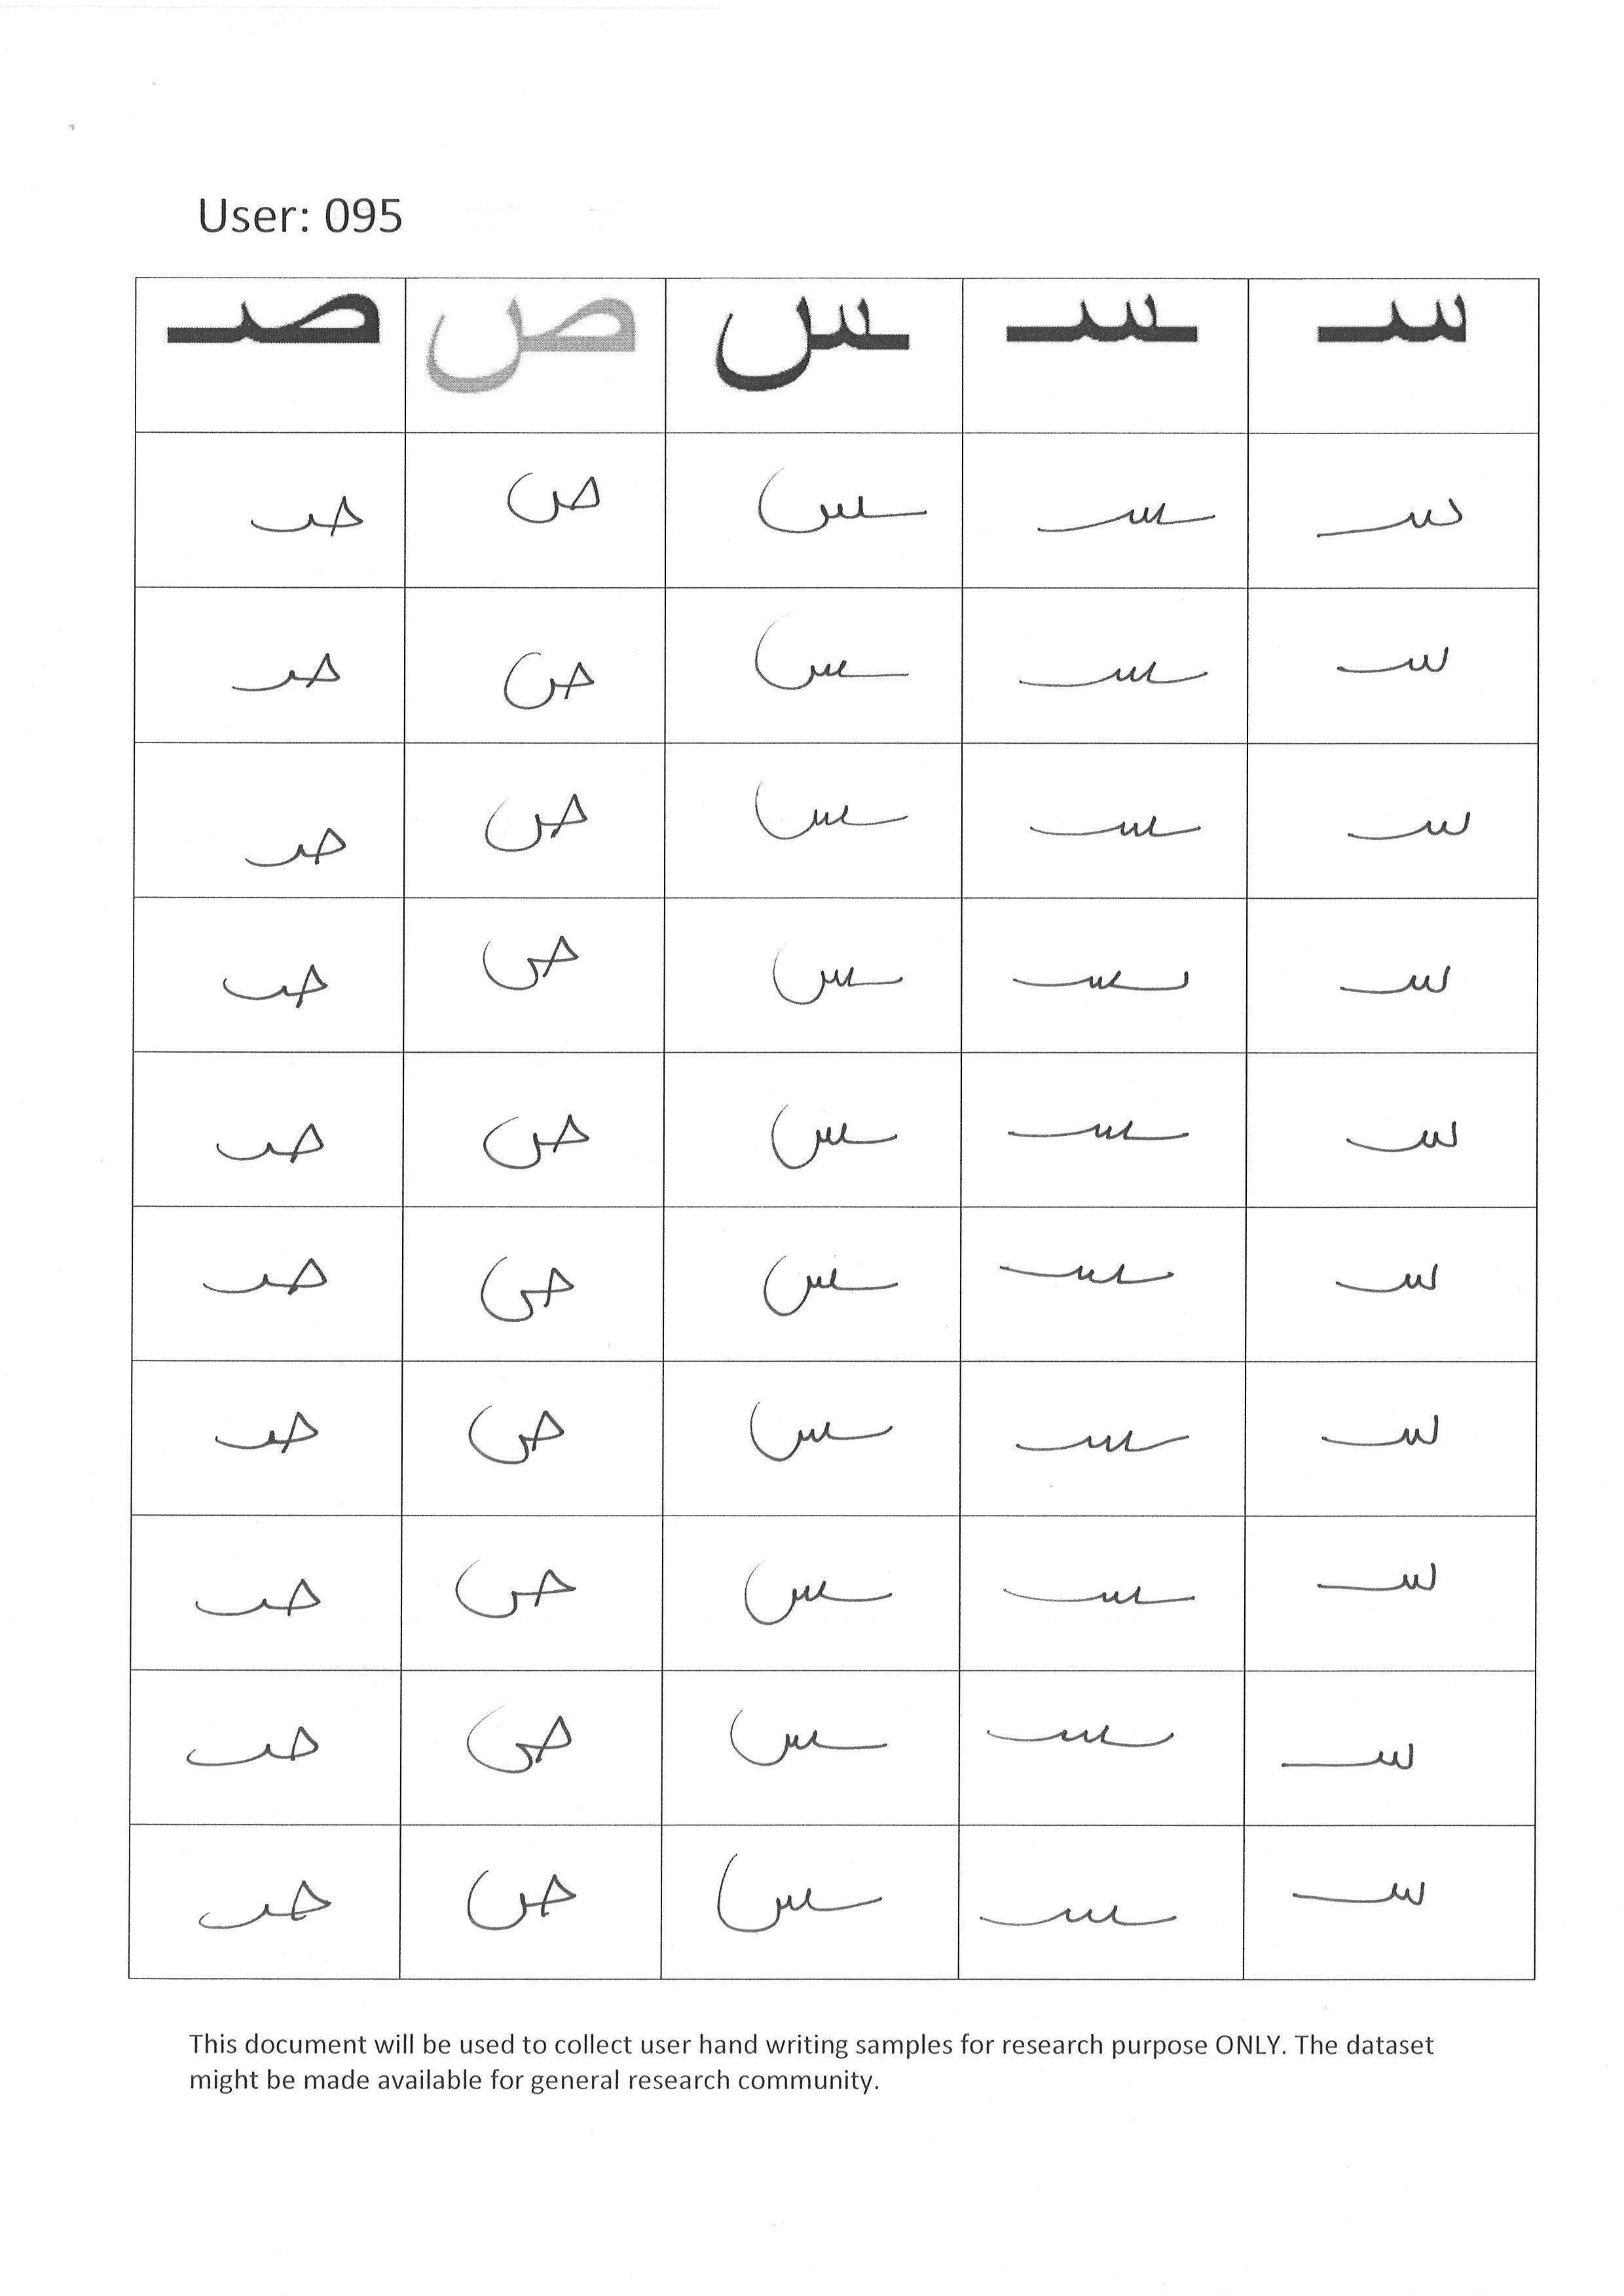 User: 095
سـ ـسـ ـس ص صـ
سـ ـسـ ـس ص صـ
سـ ـسـ ـس ص صـ
سـ ـسـ ـس ص صـ
سـ ـسـ ـس ص صـ
سـ ـسـ ـس ص صـ
سـ ـسـ ـس ص صـ
سـ ـسـ ـس ص صـ
سـ ـسـ ـس ص صـ
سـ ـسـ ـس ص صـ
سـ ـسـ ـس ص صـ
This document will be used to collect user hand writing samples for research purpose ONLY. The dataset
might be made available for general research community.